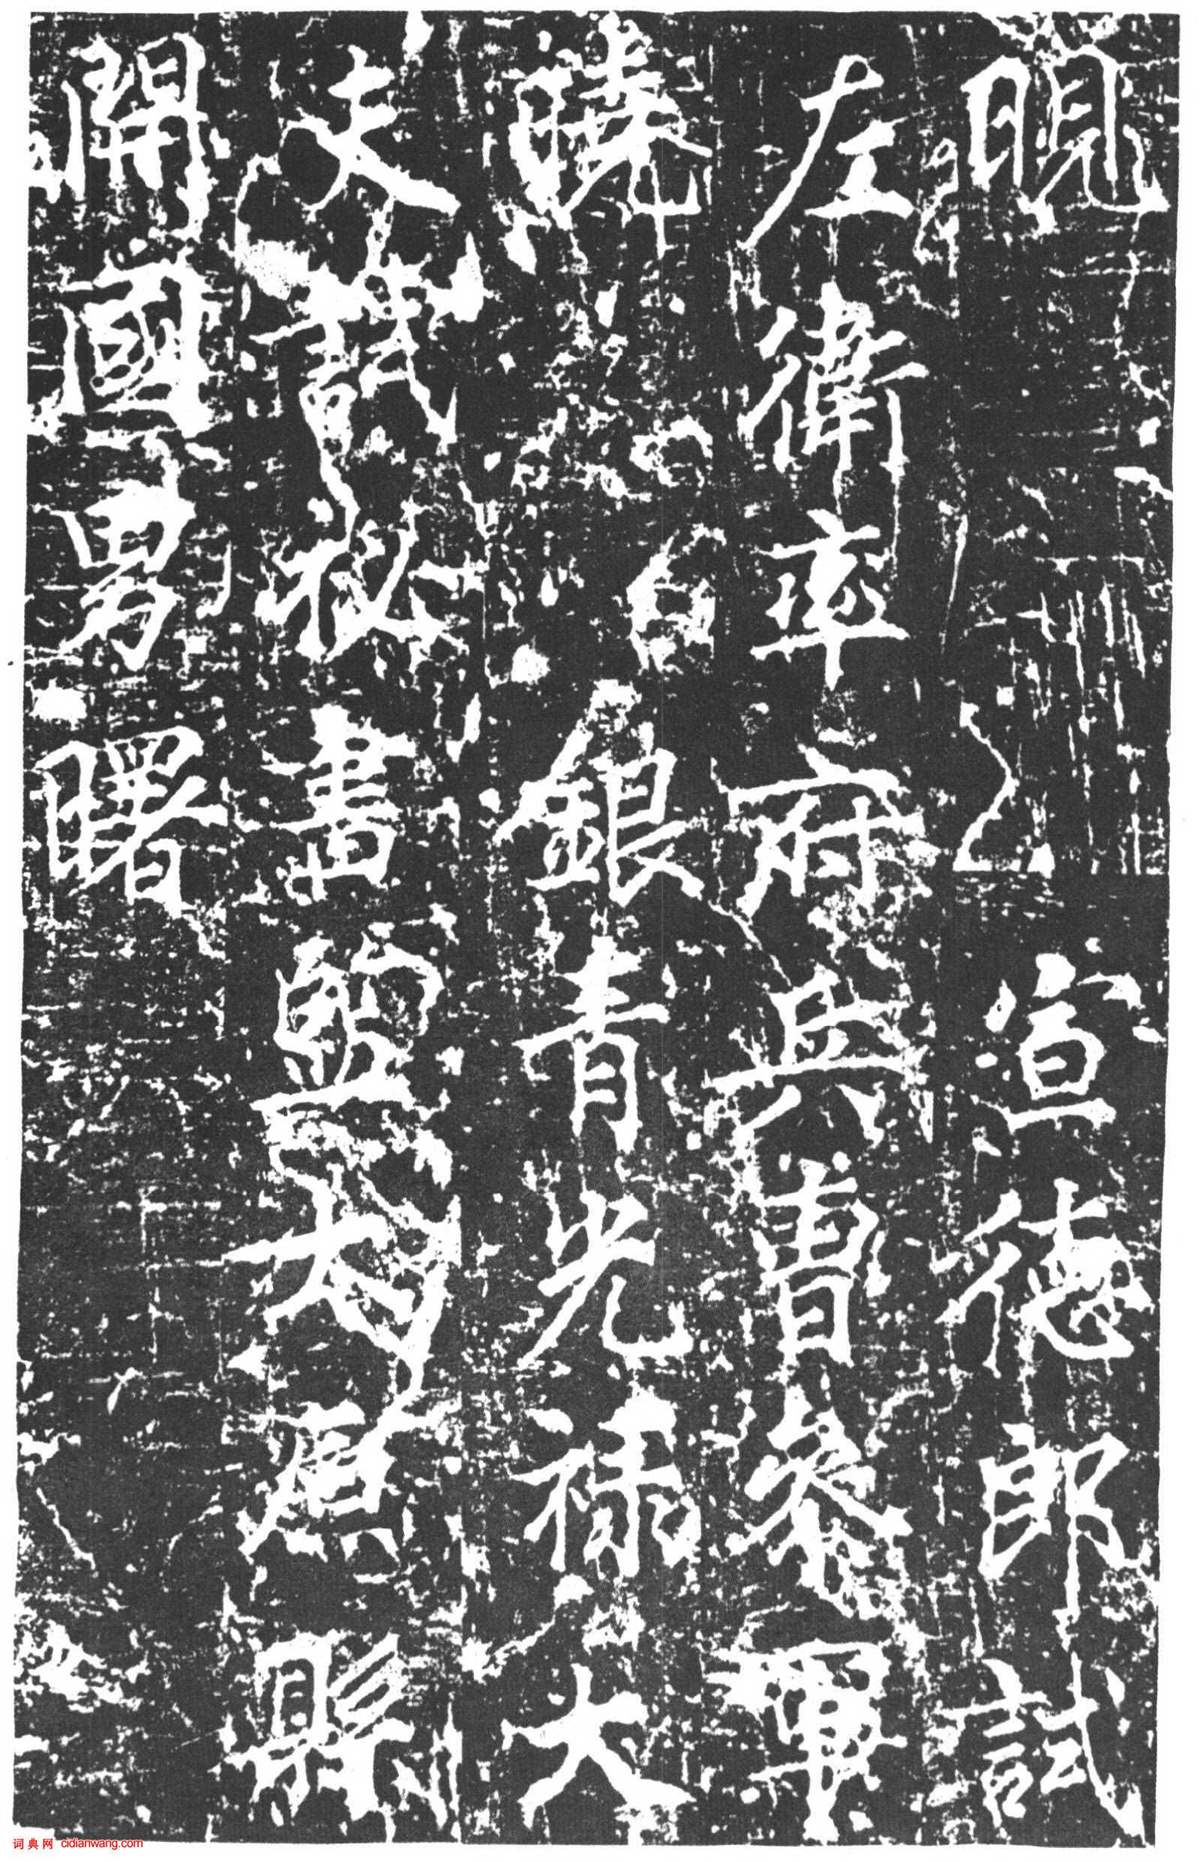 晛 宣德郎試
左衛率府兵曹參軍
曉 銀青光祿大
夫試祕書監太原縣
開國男 曙
词典网 cidianwang.com